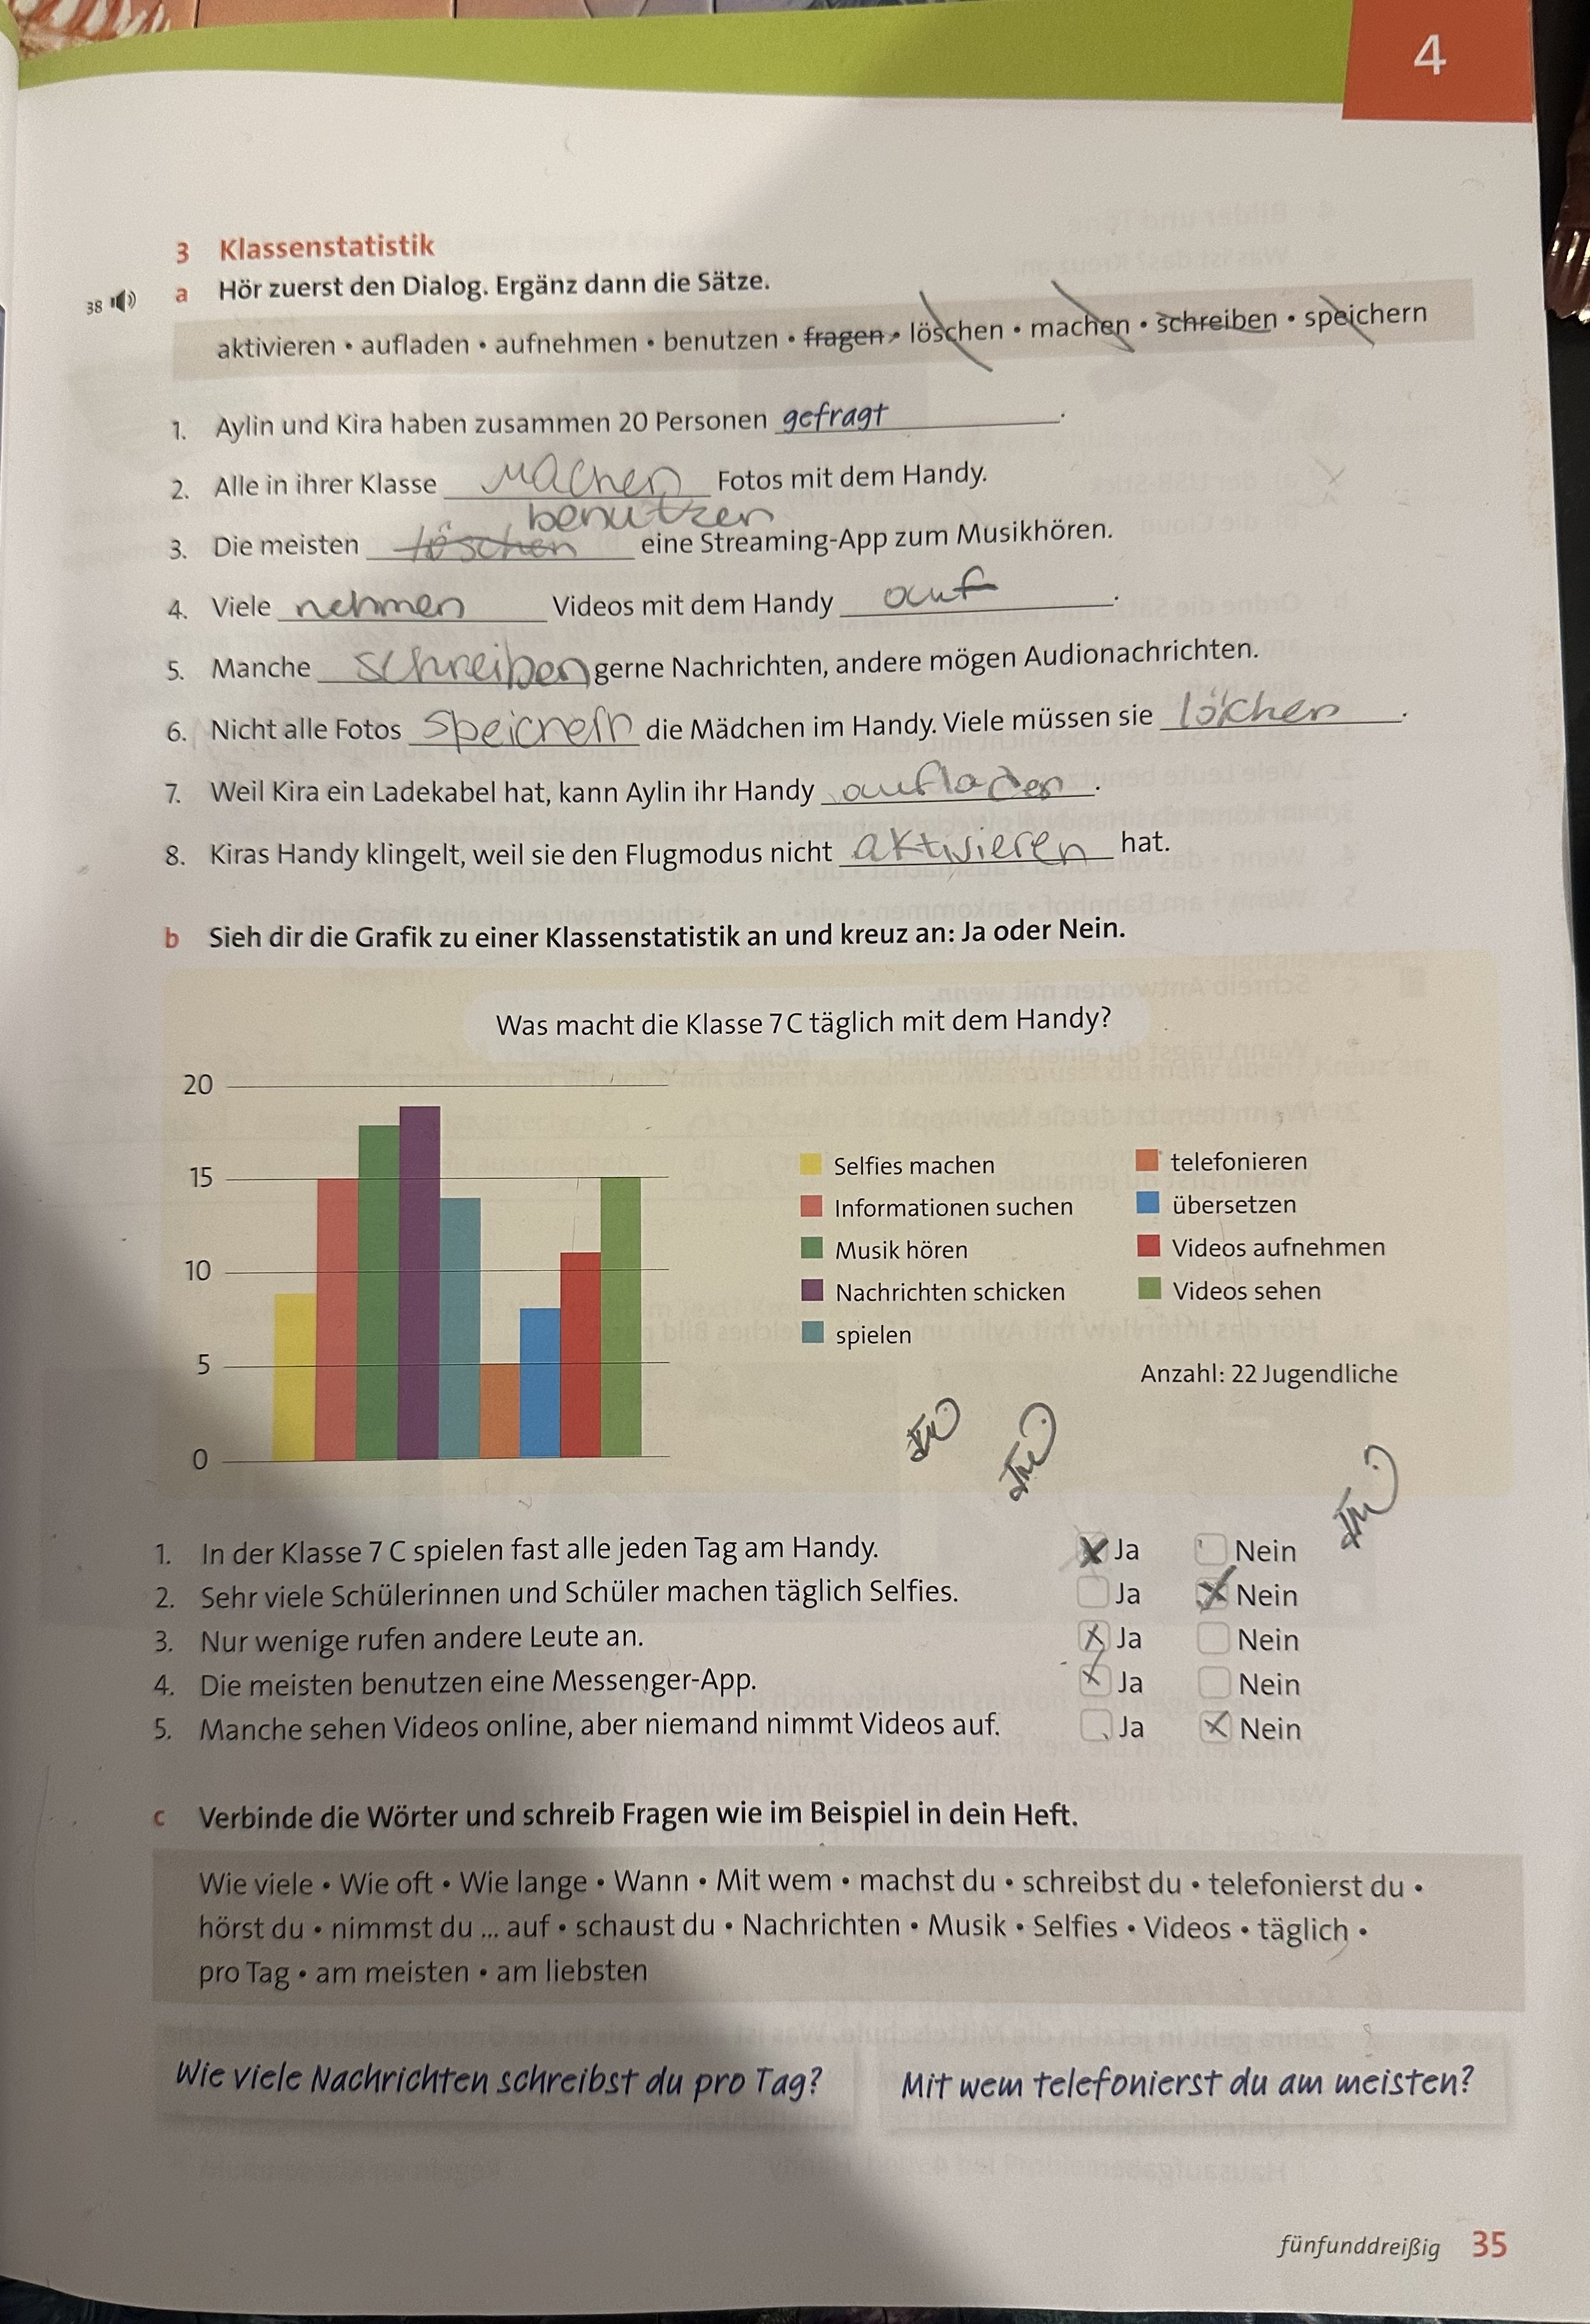 4
3 Klassenstatistik
38 a Hör zuerst den Dialog. Ergänz dann die Sätze.
aktivieren • aufladen • aufnehmen • benutzen • fragen • löschen • machen • schreiben • speichern
1. Aylin und Kira haben zusammen 20 Personen gefragt.
2. Alle in ihrer Klasse machen Fotos mit dem Handy.
benutzen
3. Die meisten löschen eine Streaming-App zum Musikhören.
4. Viele nehmen Videos mit dem Handy auf.
5. Manche schreiben gerne Nachrichten, andere mögen Audionachrichten.
6. Nicht alle Fotos speichern die Mädchen im Handy. Viele müssen sie löschen.
7. Weil Kira ein Ladekabel hat, kann Aylin ihr Handy aufladen.
8. Kiras Handy klingelt, weil sie den Flugmodus nicht aktivieren hat.
b Sieh dir die Grafik zu einer Klassenstatistik an und kreuz an: Ja oder Nein.
Was macht die Klasse 7C täglich mit dem Handy?
20
15
10
5
0
Selfies machen
Informationen suchen
Musik hören
Nachrichten schicken
spielen
telefonieren
übersetzen
Videos aufnehmen
Videos sehen
Anzahl: 22 Jugendliche
1. In der Klasse 7 C spielen fast alle jeden Tag am Handy. Ja Nein
2. Sehr viele Schülerinnen und Schüler machen täglich Selfies. Ja Nein
3. Nur wenige rufen andere Leute an. Ja Nein
4. Die meisten benutzen eine Messenger-App. Ja Nein
5. Manche sehen Videos online, aber niemand nimmt Videos auf. Ja Nein
c Verbinde die Wörter und schreib Fragen wie im Beispiel in dein Heft.
Wie viele • Wie oft • Wie lange • Wann • Mit wem • machst du • schreibst du • telefonierst du •
hörst du • nimmst du ... auf • schaust du • Nachrichten • Musik • Selfies • Videos • täglich •
pro Tag • am meisten • am liebsten
Wie viele Nachrichten schreibst du pro Tag? Mit wem telefonierst du am meisten?
fünfunddreißig 35